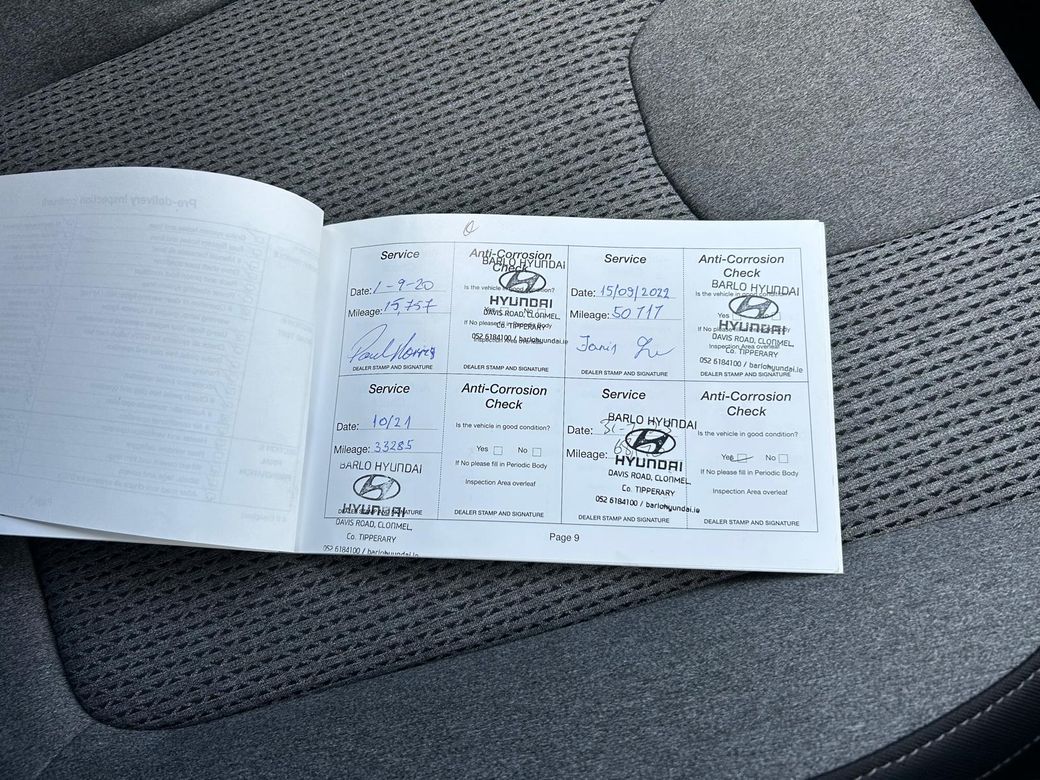 Pre-delivery Inspection
Service
Date: 1-9-20
Mileage: 15,757
Paul Norris
DEALER STAMP AND SIGNATURE
Anti-Corrosion
Check
BARLO HYUNDAI
Is the vehicle in good condition?
HYUNDAI
DAVIS ROAD, CLONMEL,
If No please fill in Periodic Body
Co. TIPPERARY
Inspection Area overleaf
052 6184100 / barlohyundai.ie
Service
Date: 15/09/2022
Mileage: 50717
DEALER STAMP AND SIGNATURE
Anti-Corrosion
Check
BARLO HYUNDAI
Is the vehicle in good condition?
Yes
HYUNDAI
If No please fill in Periodic Body
DAVIS ROAD, CLONMEL,
Inspection Area overleaf
Co. TIPPERARY
052 6184100 / barlohyundai.ie
DEALER STAMP AND SIGNATURE
Service
Date: 10/21
Mileage: 33285
BARLO HYUNDAI
HYUNDAI
DEALER STAMP AND SIGNATURE
DAVIS ROAD, CLONMEL,
Co. TIPPERARY
052 6184100 / barlohyundai.ie
Anti-Corrosion
Check
Is the vehicle in good condition?
Yes No
If No please fill in Periodic Body
Inspection Area overleaf
DEALER STAMP AND SIGNATURE
Service
BARLO HYUNDAI
Date:
Mileage:
HYUNDAI
DAVIS ROAD, CLONMEL,
Co. TIPPERARY
052 6184100 / barlohyundai.ie
DEALER STAMP AND SIGNATURE
Anti-Corrosion
Check
Is the vehicle in good condition?
Yes No
If No please fill in Periodic Body
Inspection Area overleaf
DEALER STAMP AND SIGNATURE
Page 9